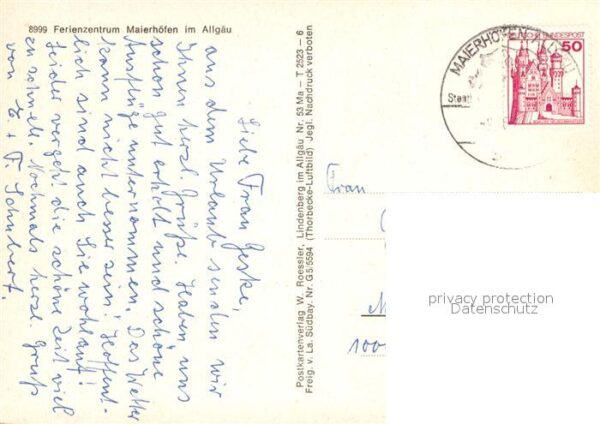 8999 Ferienzentrum Maierhöfen im Allgäu
Liebe Frau Jeske,
aus dem Urlaub senden wir
Ihnen herzl. Grüße. Haben uns
schon gut erholt und schöne
Ausflüge unternommen. Das Wetter
kann nicht besser sein! Hoffent-
lich sind auch Sie wohlauf!
Leider vergeht die schöne Zeit viel
zu schnell. Nochmals herzl. Gruß
von E + F. Schubert.
Postkartenverlag W. Roessler, Lindenberg im Allgäu, Nr. 53 Ma – T 2523 – 6
Freig. v. La. Südbay. Nr. G 5/5594 (Thorbecke-Luftbild) Jegl. Nachdruck verboten
MAIERHÖFEN
DEUTSCHE BUNDESPOST
50
Frau
100
privacy protection
Datenschutz